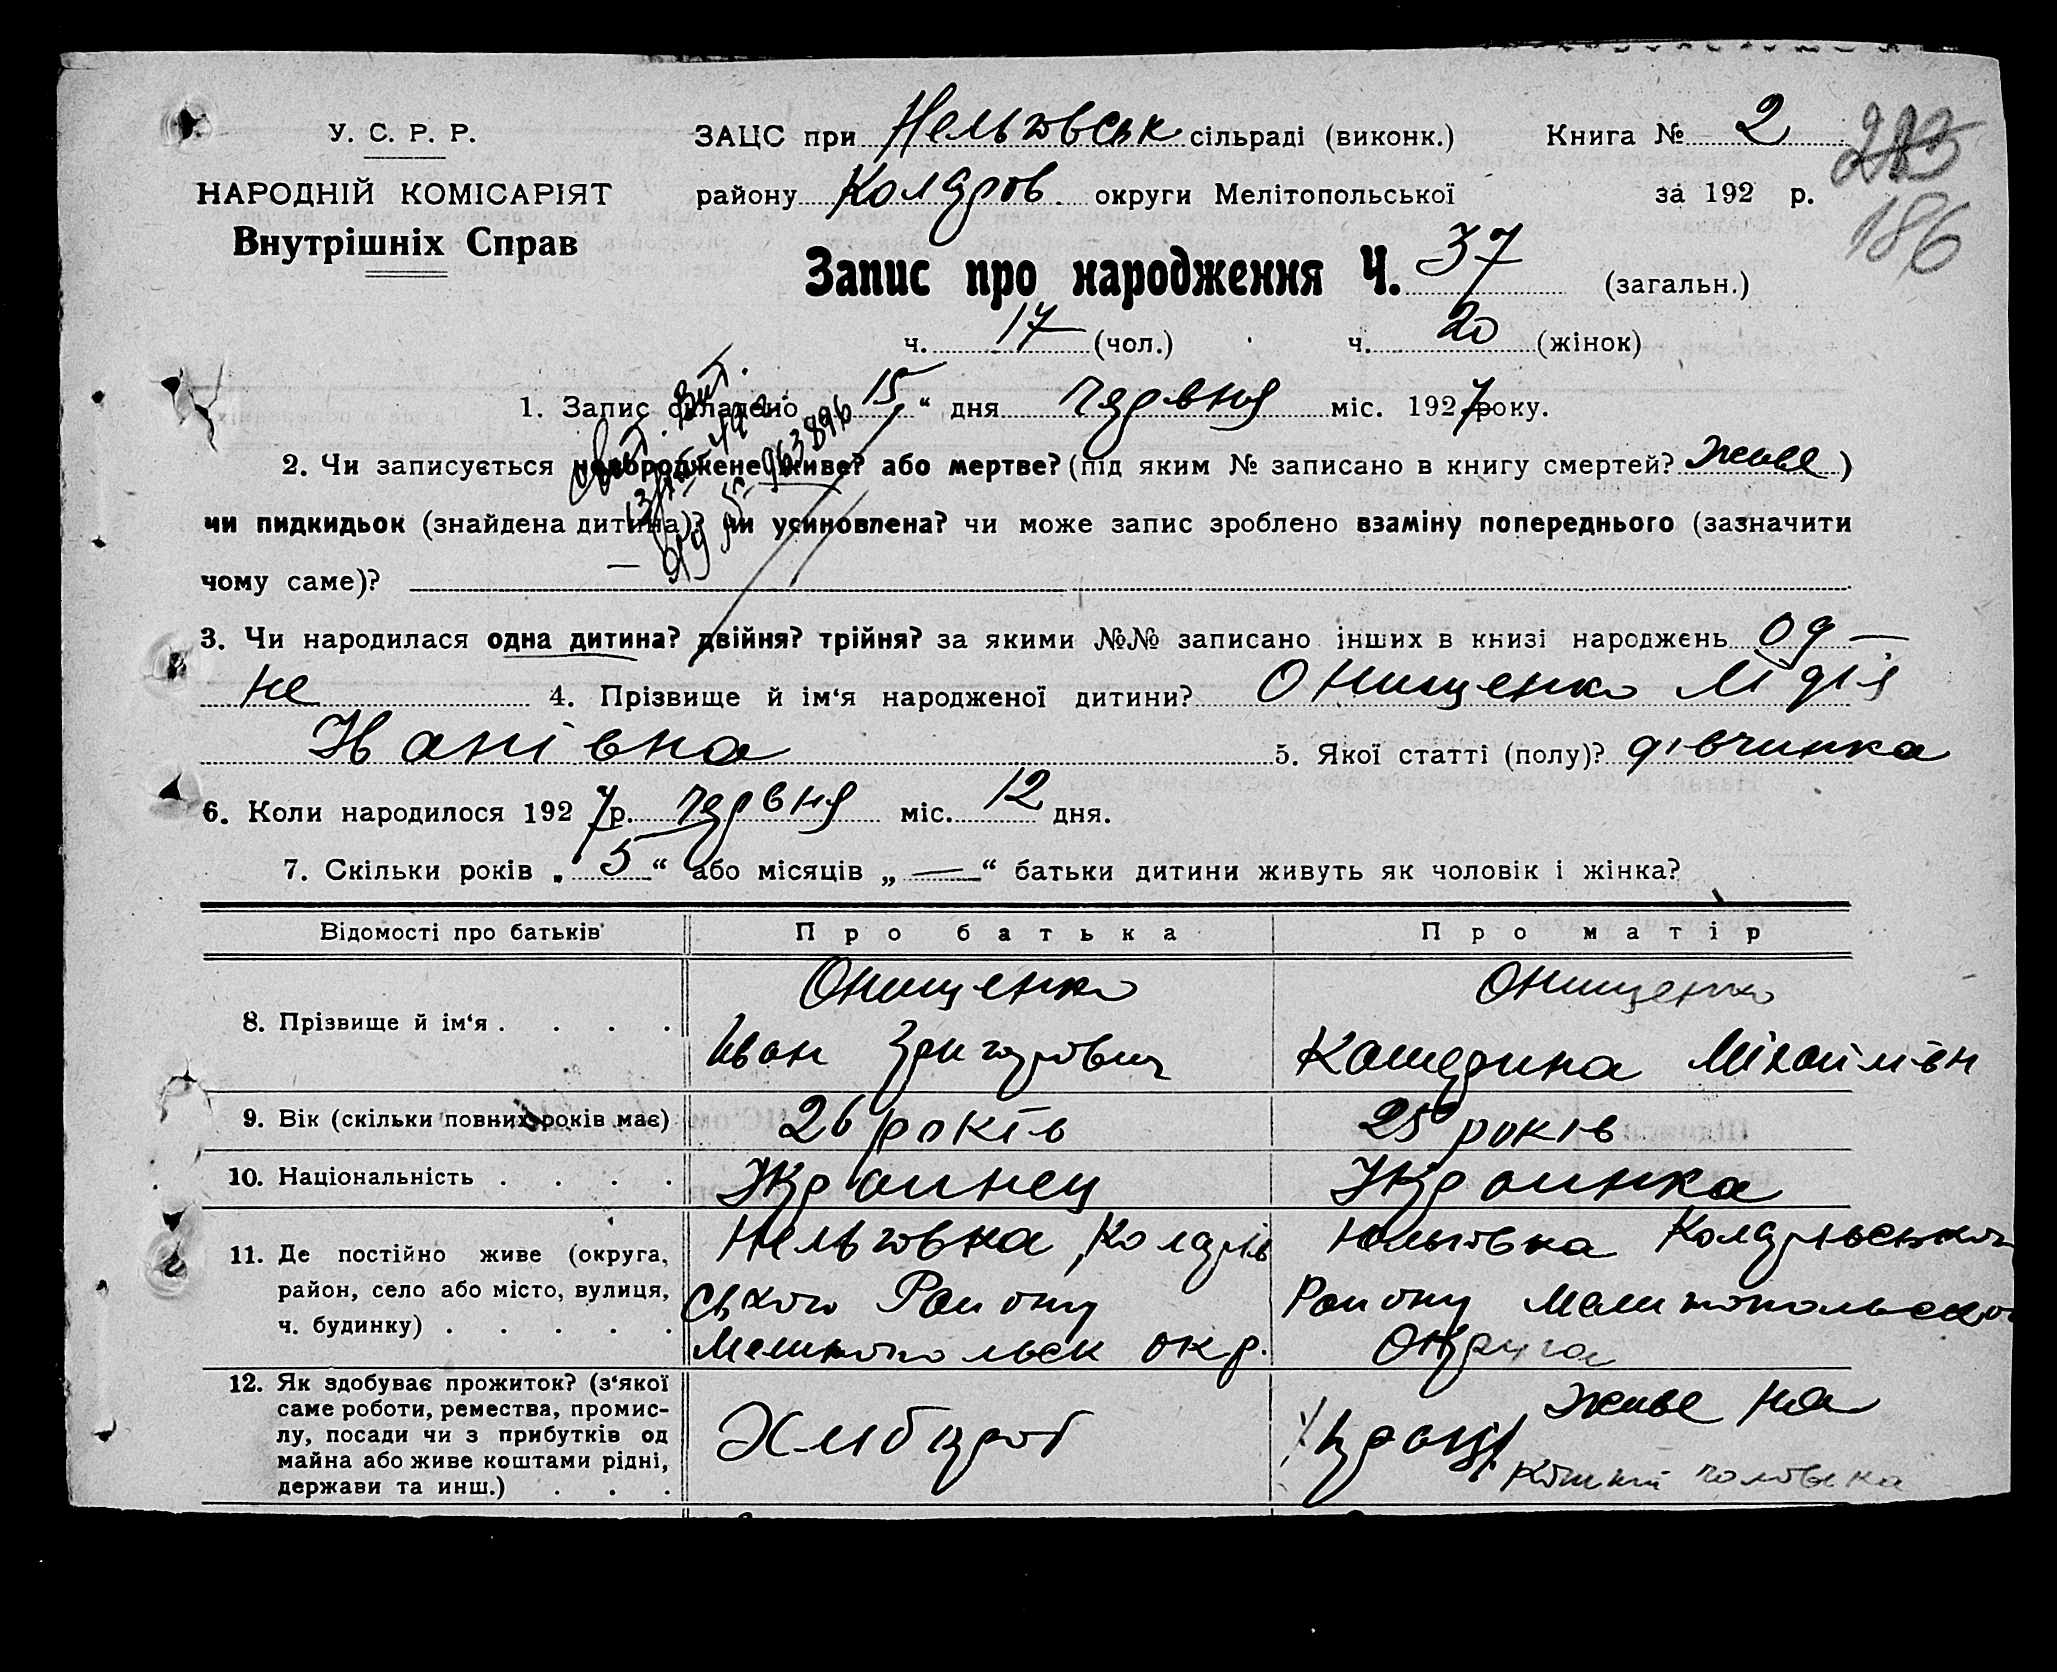 У. С. Р. Р.
НАРОДНІЙ КОМІСАРІЯТ
Внутрішніх Справ
ЗАЦС при Нельговськ сільраді (виконк.) Книга № 2
району Коларов округи Мелітопольської за 192 р.
283
186
Запис про народження Ч. 37 (загальн.)
ч. 17 (чол.) ч. 20 (жінок)
1. Запис складено 15 “ дня червня міс. 1927 року.
2. Чи записується новороджене живе? або мертве? (під яким № записано в книгу смертей? живе)
чи пидкидьок (знайдена дитина)? чи усиновлена? чи може запис зроблено взаміну попереднього (зазначити
чому саме)? —
3. Чи народилася одна дитина? двійня? трійня? за якими №№ записано інших в книзі народжень од—
не 4. Прізвище й ім‘я народженої дитини? Онищенко Лідія
Иванівна 5. Якої статті (полу)? дівчинка
6. Коли народилося 1927 р. червня міс. 12 дня.
7. Скільки років „ 5 “ або місяців „ — “ батьки дитини живуть як чоловік і жінка?
Відомості про батьків Про батька Про матір
8. Прізвище й ім‘я . . . . Онищенко Онищенко
Иван Григорович Катерина Міхайлівн
9. Вік (скільки повних років має) 26 років 25 років
10. Національність . . . . Украинец Украинка
11. Де постійно живе (округа, район, село або місто, вулиця, ч. будинку) . . . . .
Нельговка Коларів
ського Району
Мелитопольськ окр.
Нельговка Коларовського
Району Мелитопольского
Округа
12. Як здобуває прожиток? (з‘якої
саме роботи, ремества, промис-
лу, посади чи з прибутків од
майна або живе коштами рідні,
держави та инш.) . . .
Хлібороб
живе на
кошти чоловіка